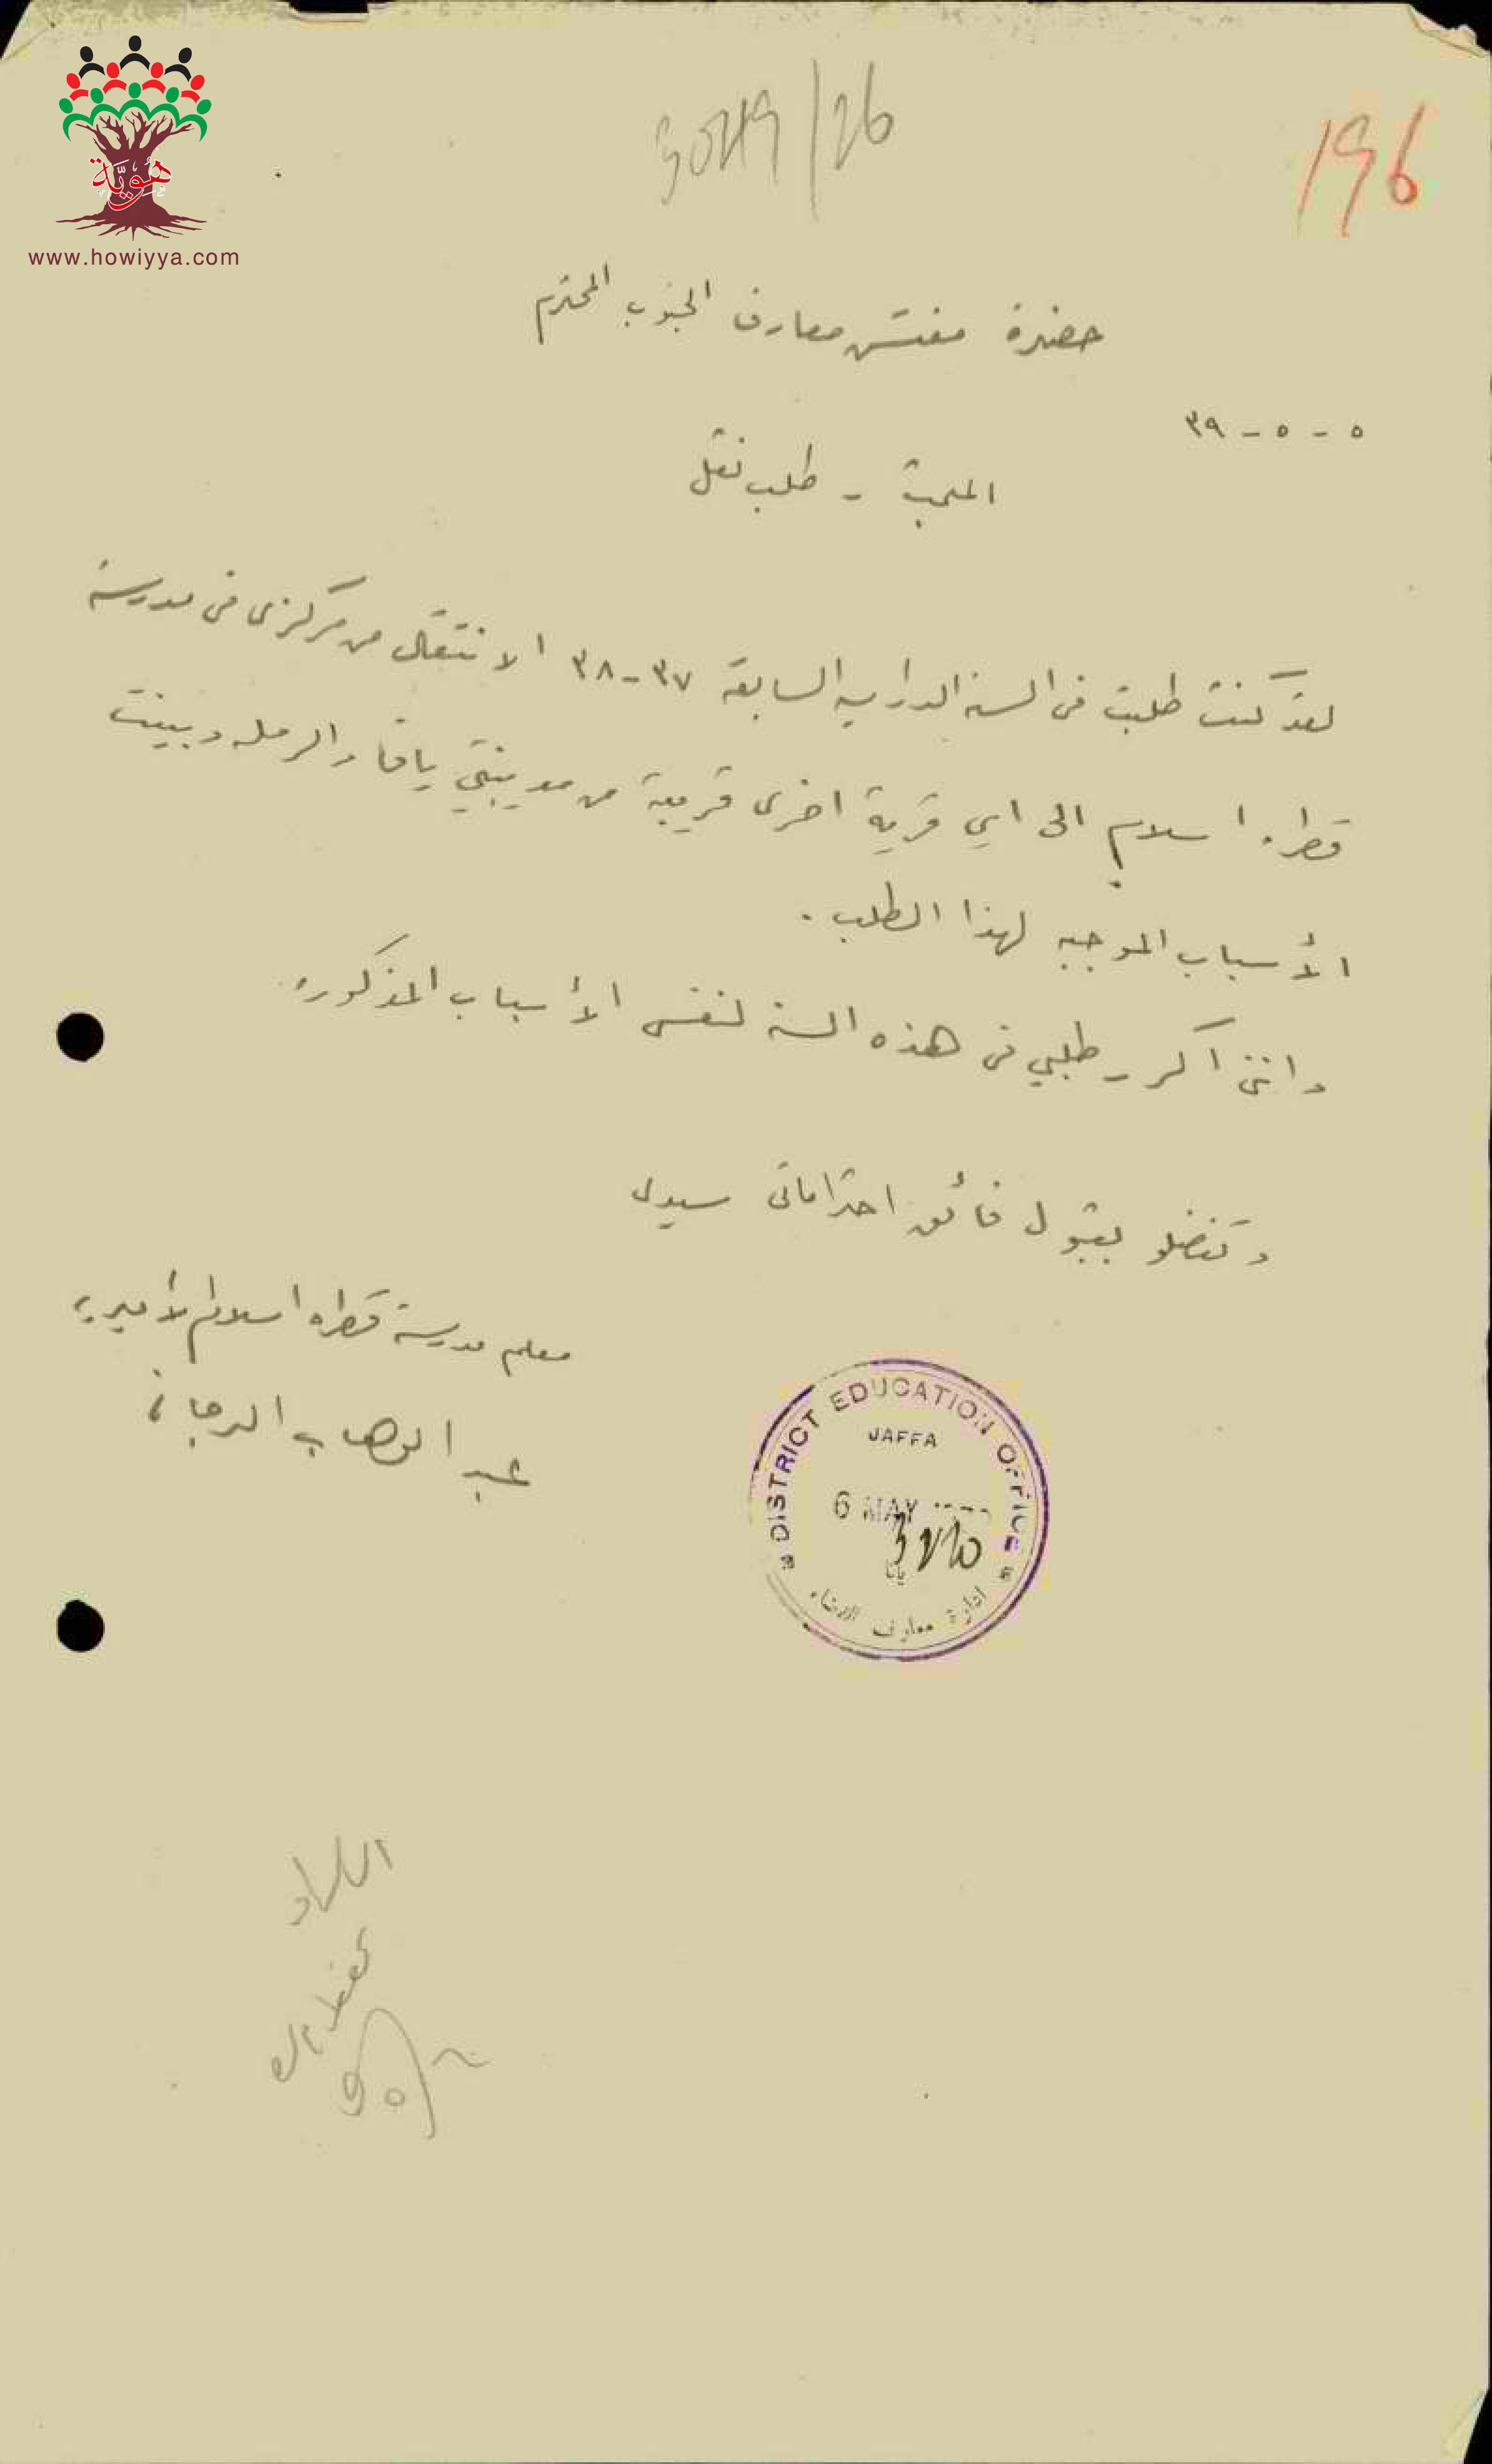 هُوِيَّة
www.howiyya.com
196
حضرة مفتش معارف الجنوب المحترم
٥ - ٥ - ٣٩
طلب نقل
لقد كنت طلبت في السنة الدراسيه السابقة ٣٧-٣٨ الانتقال من مركزي في مدرسة
قطره اسلام الى اي قرية اخرى قريبة من مدينتي يافا والرمله وبينت
الأسباب الموجبه لهذا الطلب .
وانني اكرر طلبي في هذه السنه لنفس الأسباب المذكوره.
وتفضلو بقبول فائق احتراماتي سيدي
معلم مدرسة قطره اسلام الأميريه
عبد الوهاب الدجاني
DISTRICT EDUCATION OFFICE
JAFFA
6 MAY
يافا
ادارة معارف اللواء